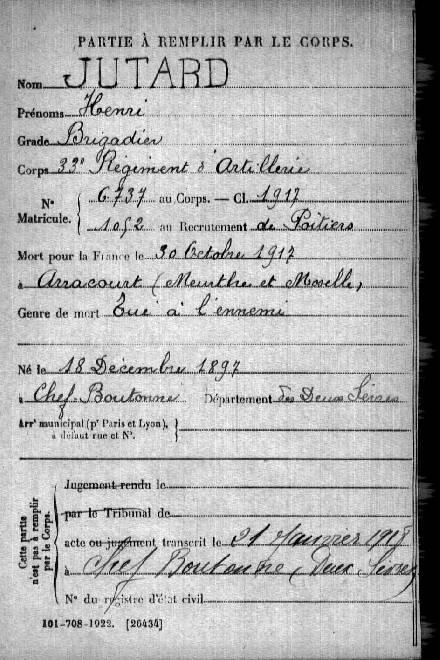 PARTIE À REMPLIR PAR LE CORPS.
Nom JUTARD
Prénoms Henri
Grade Brigadier
Corps 33e Régiment d'Artillerie
N° Matricule. 6737 au Corps. — Cl. 1917
1052 au Recrutement de Poitiers
Mort pour la France le 30 Octobre 1917
à Arracourt (Meurthe et Moselle)
Genre de mort Tué à l'ennemi
Né le 18 Décembre 1897
à Chef-Boutonne Département des Deux Sèvres
Arr^t municipal (p^r Paris et Lyon), à défaut rue et N°.
Cette partie n'est pas à remplir par le Corps.
Jugement rendu le
par le Tribunal de
acte ou jugement transcrit le 21 Janvier 1918
à Chef Boutonne (Deux Sèvres)
N° du registre d'état civil
101-708-1922. [26434]